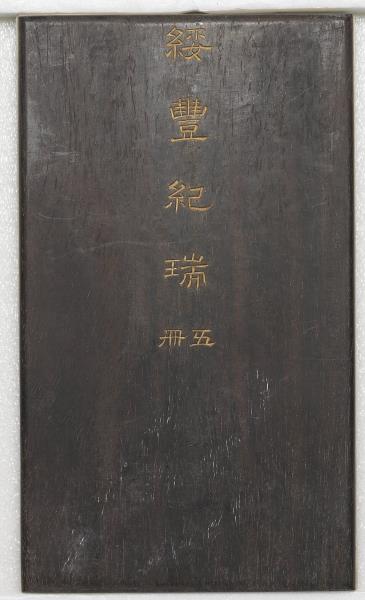 綏豐紀瑞
五冊